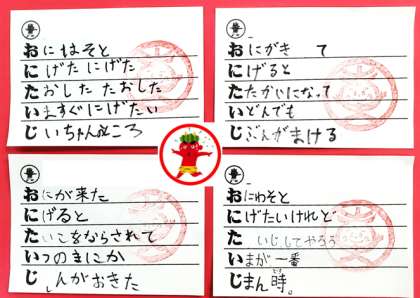 おにはそと
にげた にげた
たおした たおした
いますぐにげたい
じいちゃんところ
おにがき て
にげると
たたかいになって
いどんでも
じぶんがまける
おにが来た
にげると
たいこをならされて
いつのまにか
じしんがおきた
おにわそと
にげたいけれど
たいじしてやろう
いまが一番
じまん時。